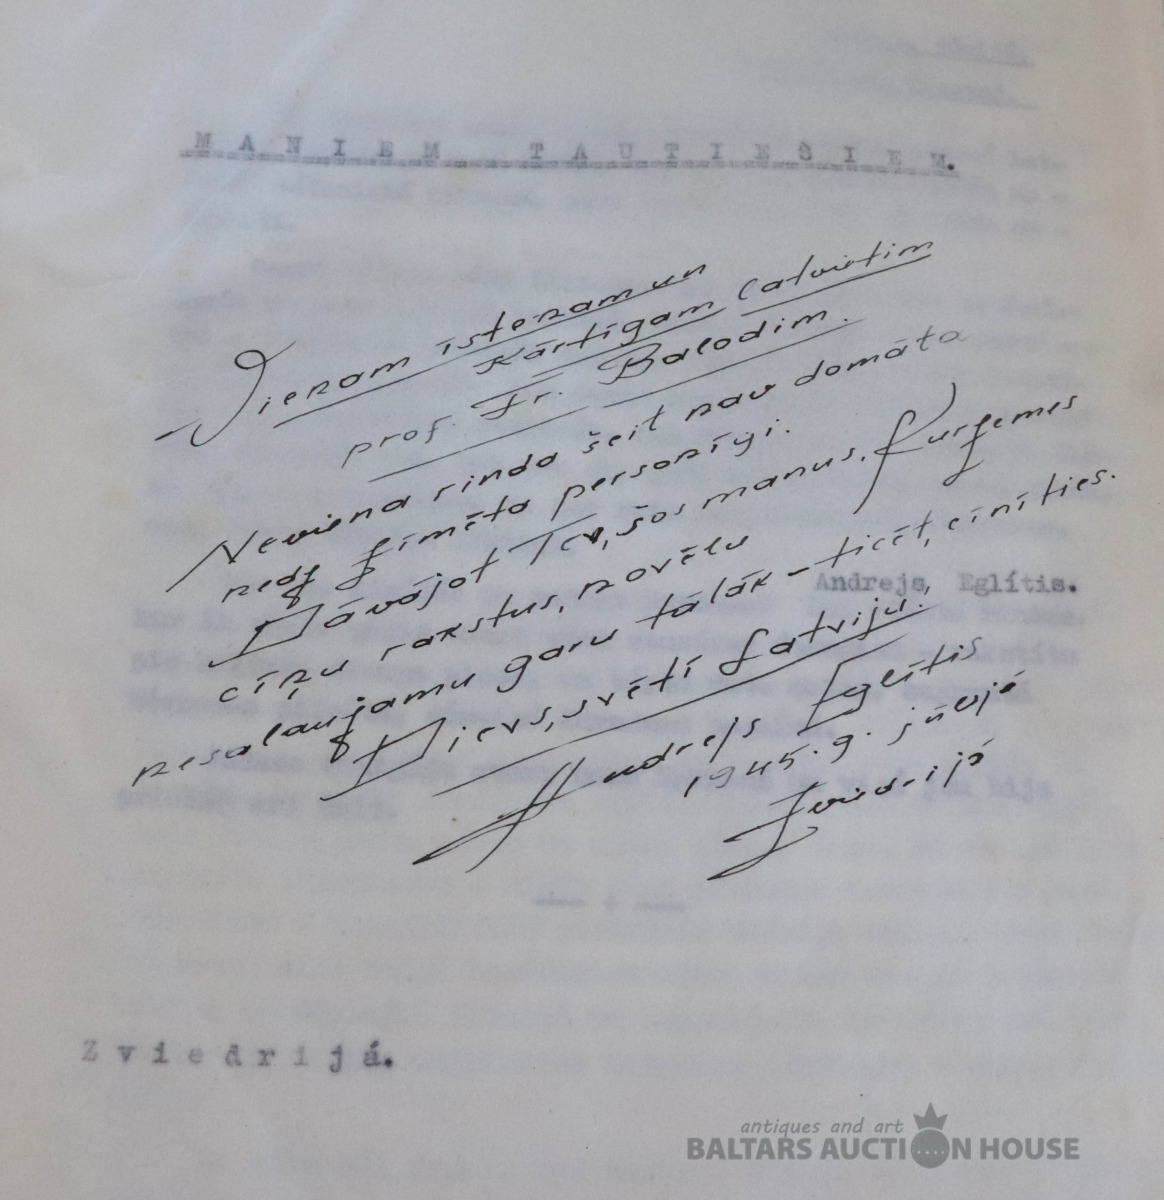 MANIEM TAUTIEŠIEM.
Vienam īstenam un
kārtīgam latvietim
prof. Fr. Balodim.
Neviena rinda šeit nav domāta
nedz zīmēta personīgi.
Dāvājot Tev, šos manus, Kurzemes
cīņu rakstus, novēlu
nesalaužamu garu tālāk – ticēt, cīnīties.
Dievs, svētī Latviju!
Andrejs Eglītis
1945. 9. jūnijā
Zviedrijā
Andrejs, Eglítis.
Zviedrijá.
antiques and art
BALTARS AUCTION HOUSE